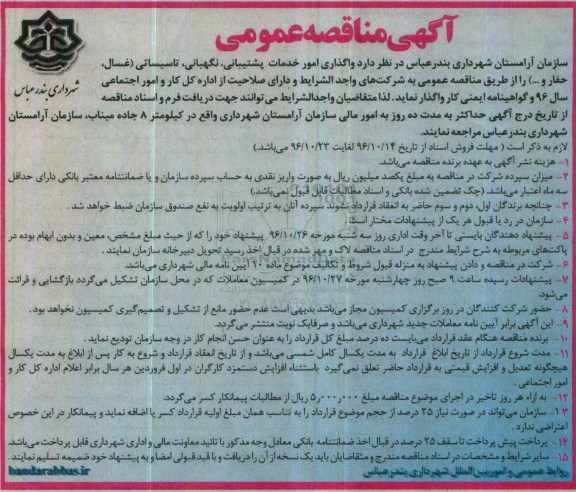 آگهی مناقصه عمومی
شهرداری بندرعباس
سازمان آرامستان شهرداری بندرعباس در نظر دارد واگذاری امور خدمات پشتیبانی، نگهبانی، تاسیساتی (غسال،
حفار و ...) را از طریق مناقصه عمومی به شرکت‌های واجد الشرایط و دارای صلاحیت از اداره کل کار و امور اجتماعی
سال ۹۶ و گواهینامه ایمنی کار واگذار نماید. لذا متقاضیان واجدالشرایط می‌توانند جهت دریافت فرم و اسناد مناقصه
از تاریخ درج آگهی حداکثر به مدت ده روز به امور مالی سازمان آرامستان شهرداری واقع در کیلومتر ۸ جاده میناب، سازمان آرامستان
شهرداری بندرعباس مراجعه نمایند.
لازم به ذکر است ( مهلت فروش اسناد از تاریخ ۹۶/۱۰/۱۴ لغایت ۹۶/۱۰/۲۳ می‌باشد.)
۱- هزینه نشر آگهی به عهده برنده مناقصه می‌باشد.
۲- میزان سپرده شرکت در مناقصه به مبلغ یکصد میلیون ریال به صورت واریز نقدی به حساب سپرده سازمان و یا ضمانتنامه معتبر بانکی دارای حداقل
سه ماه اعتبار می‌باشد. (چک تضمین شده بانکی و اسناد مطالبات قابل قبول نمی‌باشد.)
۳- چنانچه برندگان اول، دوم و سوم حاضر به انعقاد قرارداد نشوند سپرده آنان به ترتیب اولویت به نفع صندوق سازمان ضبط خواهد شد.
۴- سازمان در رد یا قبول هر یک از پیشنهادات مختار است.
۵- پیشنهاد دهندگان بایستی تا آخر وقت اداری روز سه شنبه مورخه ۹۶/۱۰/۲۶ پیشنهاد خود را که از حیث مبلغ مشخص، معین و بدون ابهام بوده در
پاکت‌های مربوطه به شرح شرایط مندرج در اسناد مناقصه لاک و مهر شده در قبال اخذ رسید تحویل دبیرخانه سازمان نمایند.
۶- شرکت در مناقصه و دادن پیشنهاد به منزله قبول شروط و تکالیف موضوع ماده ۱۰ آیین نامه مالی شهرداری می‌باشد.
۷- پیشنهادات رسیده ساعت ۹ صبح روز چهارشنبه مورخه ۹۶/۱۰/۲۷ در کمیسیون معاملات که در محل سازمان تشکیل می‌گردد بازگشایی و قرائت
می‌شود.
۸- حضور شرکت کنندگان در روز برگزاری کمیسیون مجاز می‌باشد بدیهی است عدم حضور مانع از تشکیل و تصمیم‌گیری کمیسیون نخواهد بود.
۹- این آگهی برابر آیین نامه معاملات جدید شهرداری می‌باشد و صرفا یک نوبت منتشر می‌گردد.
۱۰- برنده مناقصه هنگام عقد قرارداد می‌بایست ده درصد مبلغ کل قرارداد را به عنوان حسن انجام کار در وجه سازمان تودیع نماید.
۱۱- مدت شروع قرارداد از تاریخ ابلاغ قرارداد به مدت یکسال کامل شمسی می‌باشد و از تاریخ انعقاد قرارداد و شروع به کار پس از ابلاغ به مدت یکسال
هیچگونه تعدیل و افزایش قیمتی به قرارداد حاضر تعلق نمی‌گیرد باستثناء افزایش دستمزد کارگران در اول فروردین هر سال برابر اعلام اداره کل کار و
امور اجتماعی.
۱۲- به ازاء هر روز تاخیر در اجرای موضوع مناقصه مبلغ ۵٫۰۰۰٫۰۰۰ ریال از مطالبات پیمانکار کسر می‌گردد.
۱۳- سازمان می‌تواند در صورت نیاز ۲۵ درصد از حجم موضوع قرارداد را به تناسب همان مبلغ اولیه قرارداد کسر یا اضافه نماید و پیمانکار در این خصوص
اعتراضی ندارد.
۱۴- پرداخت پیش پرداخت تا سقف ۲۵ درصد در قبال اخذ ضمانتنامه بانکی معادل وجه مذکور با تائید معاونت مالی و اداری شهرداری قابل پرداخت می‌باشد.
۱۵- سایر شرایط و مشخصات در اسناد مناقصه مندرج و متقاضیان باید یک نسخه از آن را دریافت و با قید قبولی امضا و به پیشنهاد خود ضمیمه تسلیم نمایند.
روابط عمومی و امور بین الملل شهرداری بندرعباس
bandarabbas.ir